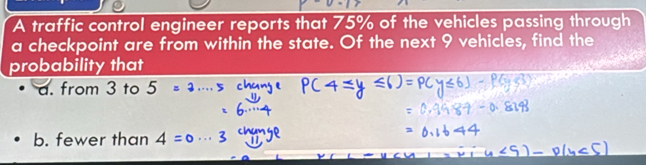 A traffic control engineer reports that 75% of the vehicles passing through
a checkpoint are from within the state. Of the next 9 vehicles, find the
probability that
• a. from 3 to 5 = 3....5 change P(4≤y≤6) = P(y≤6) - P(y≤3)
= 6....4 = 0.9987 - 0.8343
= 0.1644
• b. fewer than 4 = 0...3 change